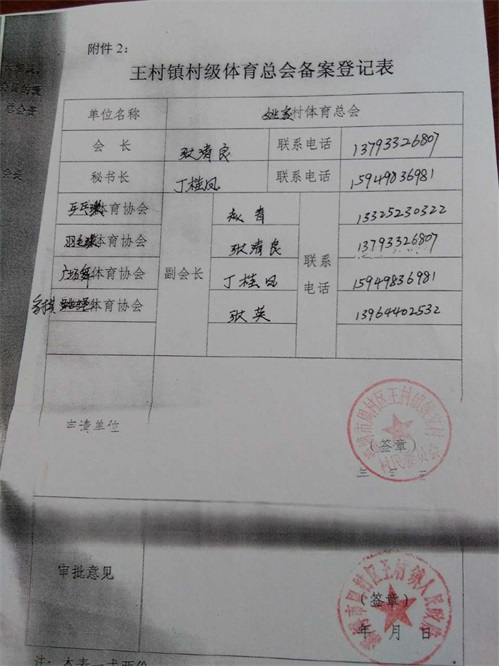 附件2：
王村镇村级体育总会备案登记表
单位名称 姚家村体育总会
会 长 耿清良 联系电话 13793326807
秘书长 丁桂凤 联系电话 15949836981
乒乓球体育协会 13325230322
羽毛球体育协会 耿清良 13793326807
广场舞体育协会 副会长 丁桂凤 联系电话 15949836981
体育协会 耿英 13964402532
申请单位
（签章）
审批意见
（签章）
年 月 日
注：本表一式两份